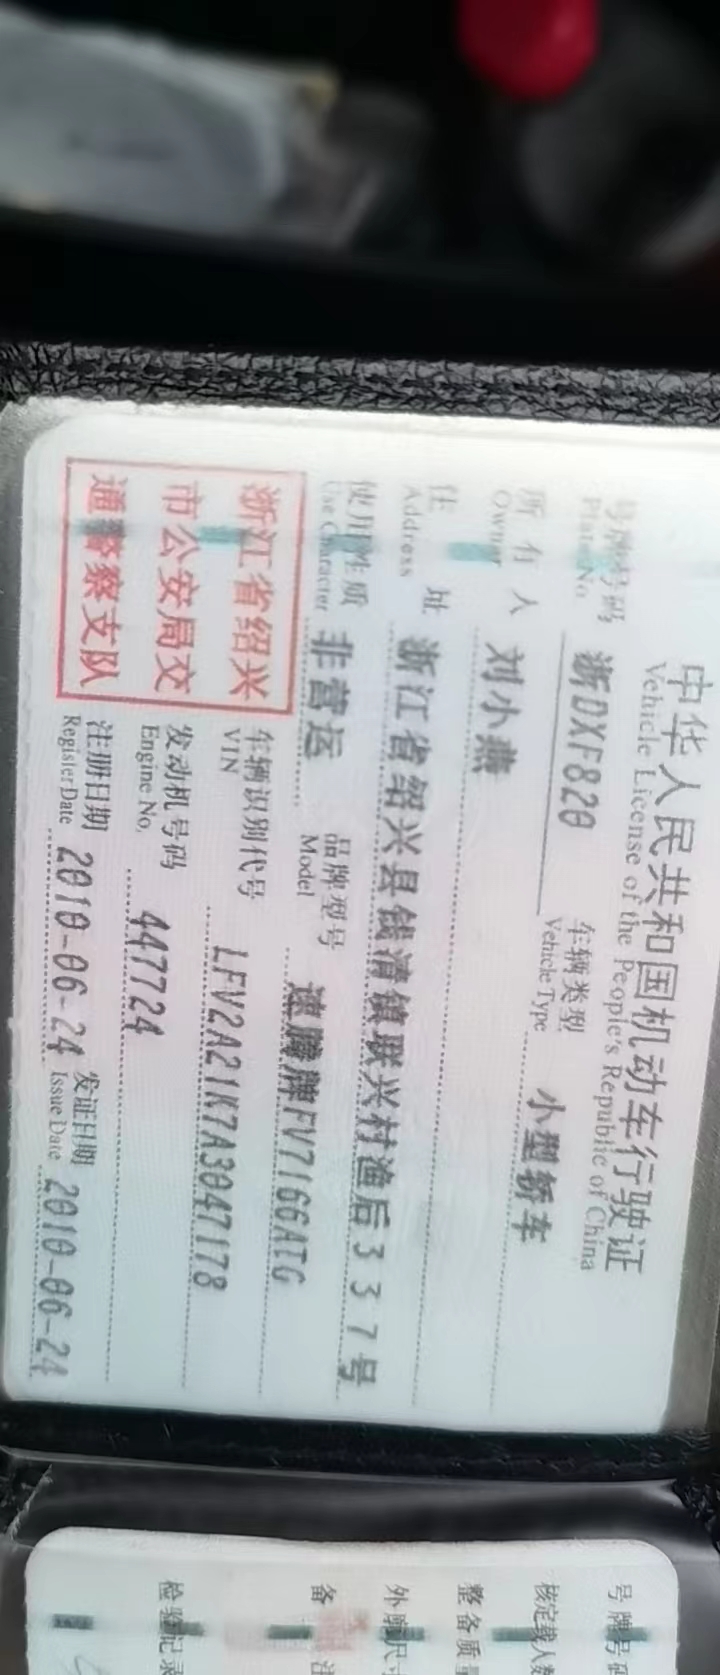 中华人民共和国机动车行驶证
Vehicle License of the People's Republic of China
号牌号码 浙DXF820 车辆类型 小型轿车
Plate No. Vehicle Type
所有人 刘小燕
Owner
住址 浙江省绍兴县钱清镇联兴村渔后337号
Address
使用性质 非营运 品牌型号 速腾牌FV7166ATG
Use Character Model
浙江省绍兴
市公安局交
通警察支队
车辆识别代号 LFV2A21K7A3047178
VIN
发动机号码 447724
Engine No.
注册日期 2010-06-24 发证日期 2010-06-24
Register Date Issue Date
号牌号码
核定载人数
整备质量
外廓尺寸
备注
检验记录